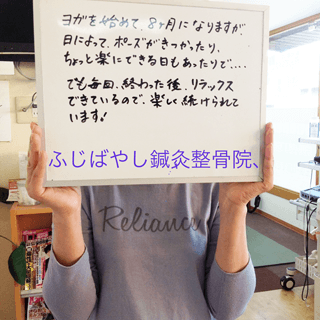 ヨガを始めて、8ヶ月になりますが、
日によって、ポーズがきつかったり、
ちょっと楽にできる日もあったりで....
でも毎回、終わった後、リラックス
できているので、楽しく続けられて
います!
ふじばやし鍼灸整骨院、
Reliance